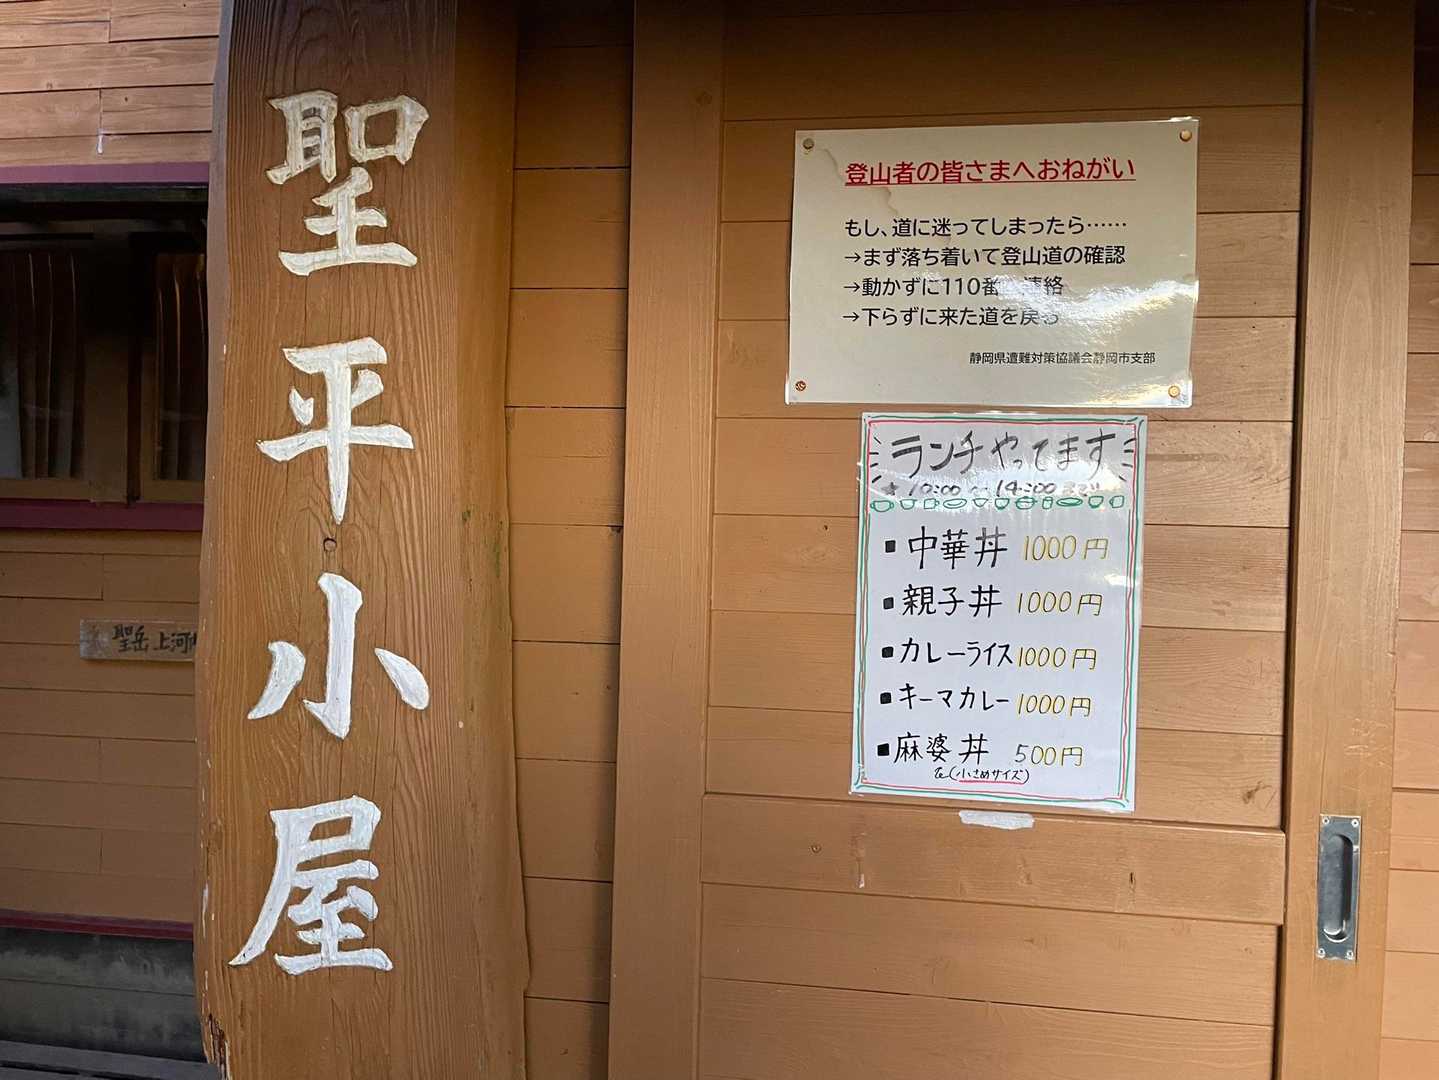 聖平小屋
聖岳 上河内
登山者の皆さまへおねがい
もし、道に迷ってしまったら……
→まず落ち着いて登山道の確認
→動かずに110番 連絡
→下らずに来た道を戻る
静岡県遭難対策協議会静岡市支部
ランチやってます
★10:00〜14:00まで
■中華丼 1000円
■親子丼 1000円
■カレーライス 1000円
■キーマカレー 1000円
■麻婆丼 500円
(小さめサイズ)